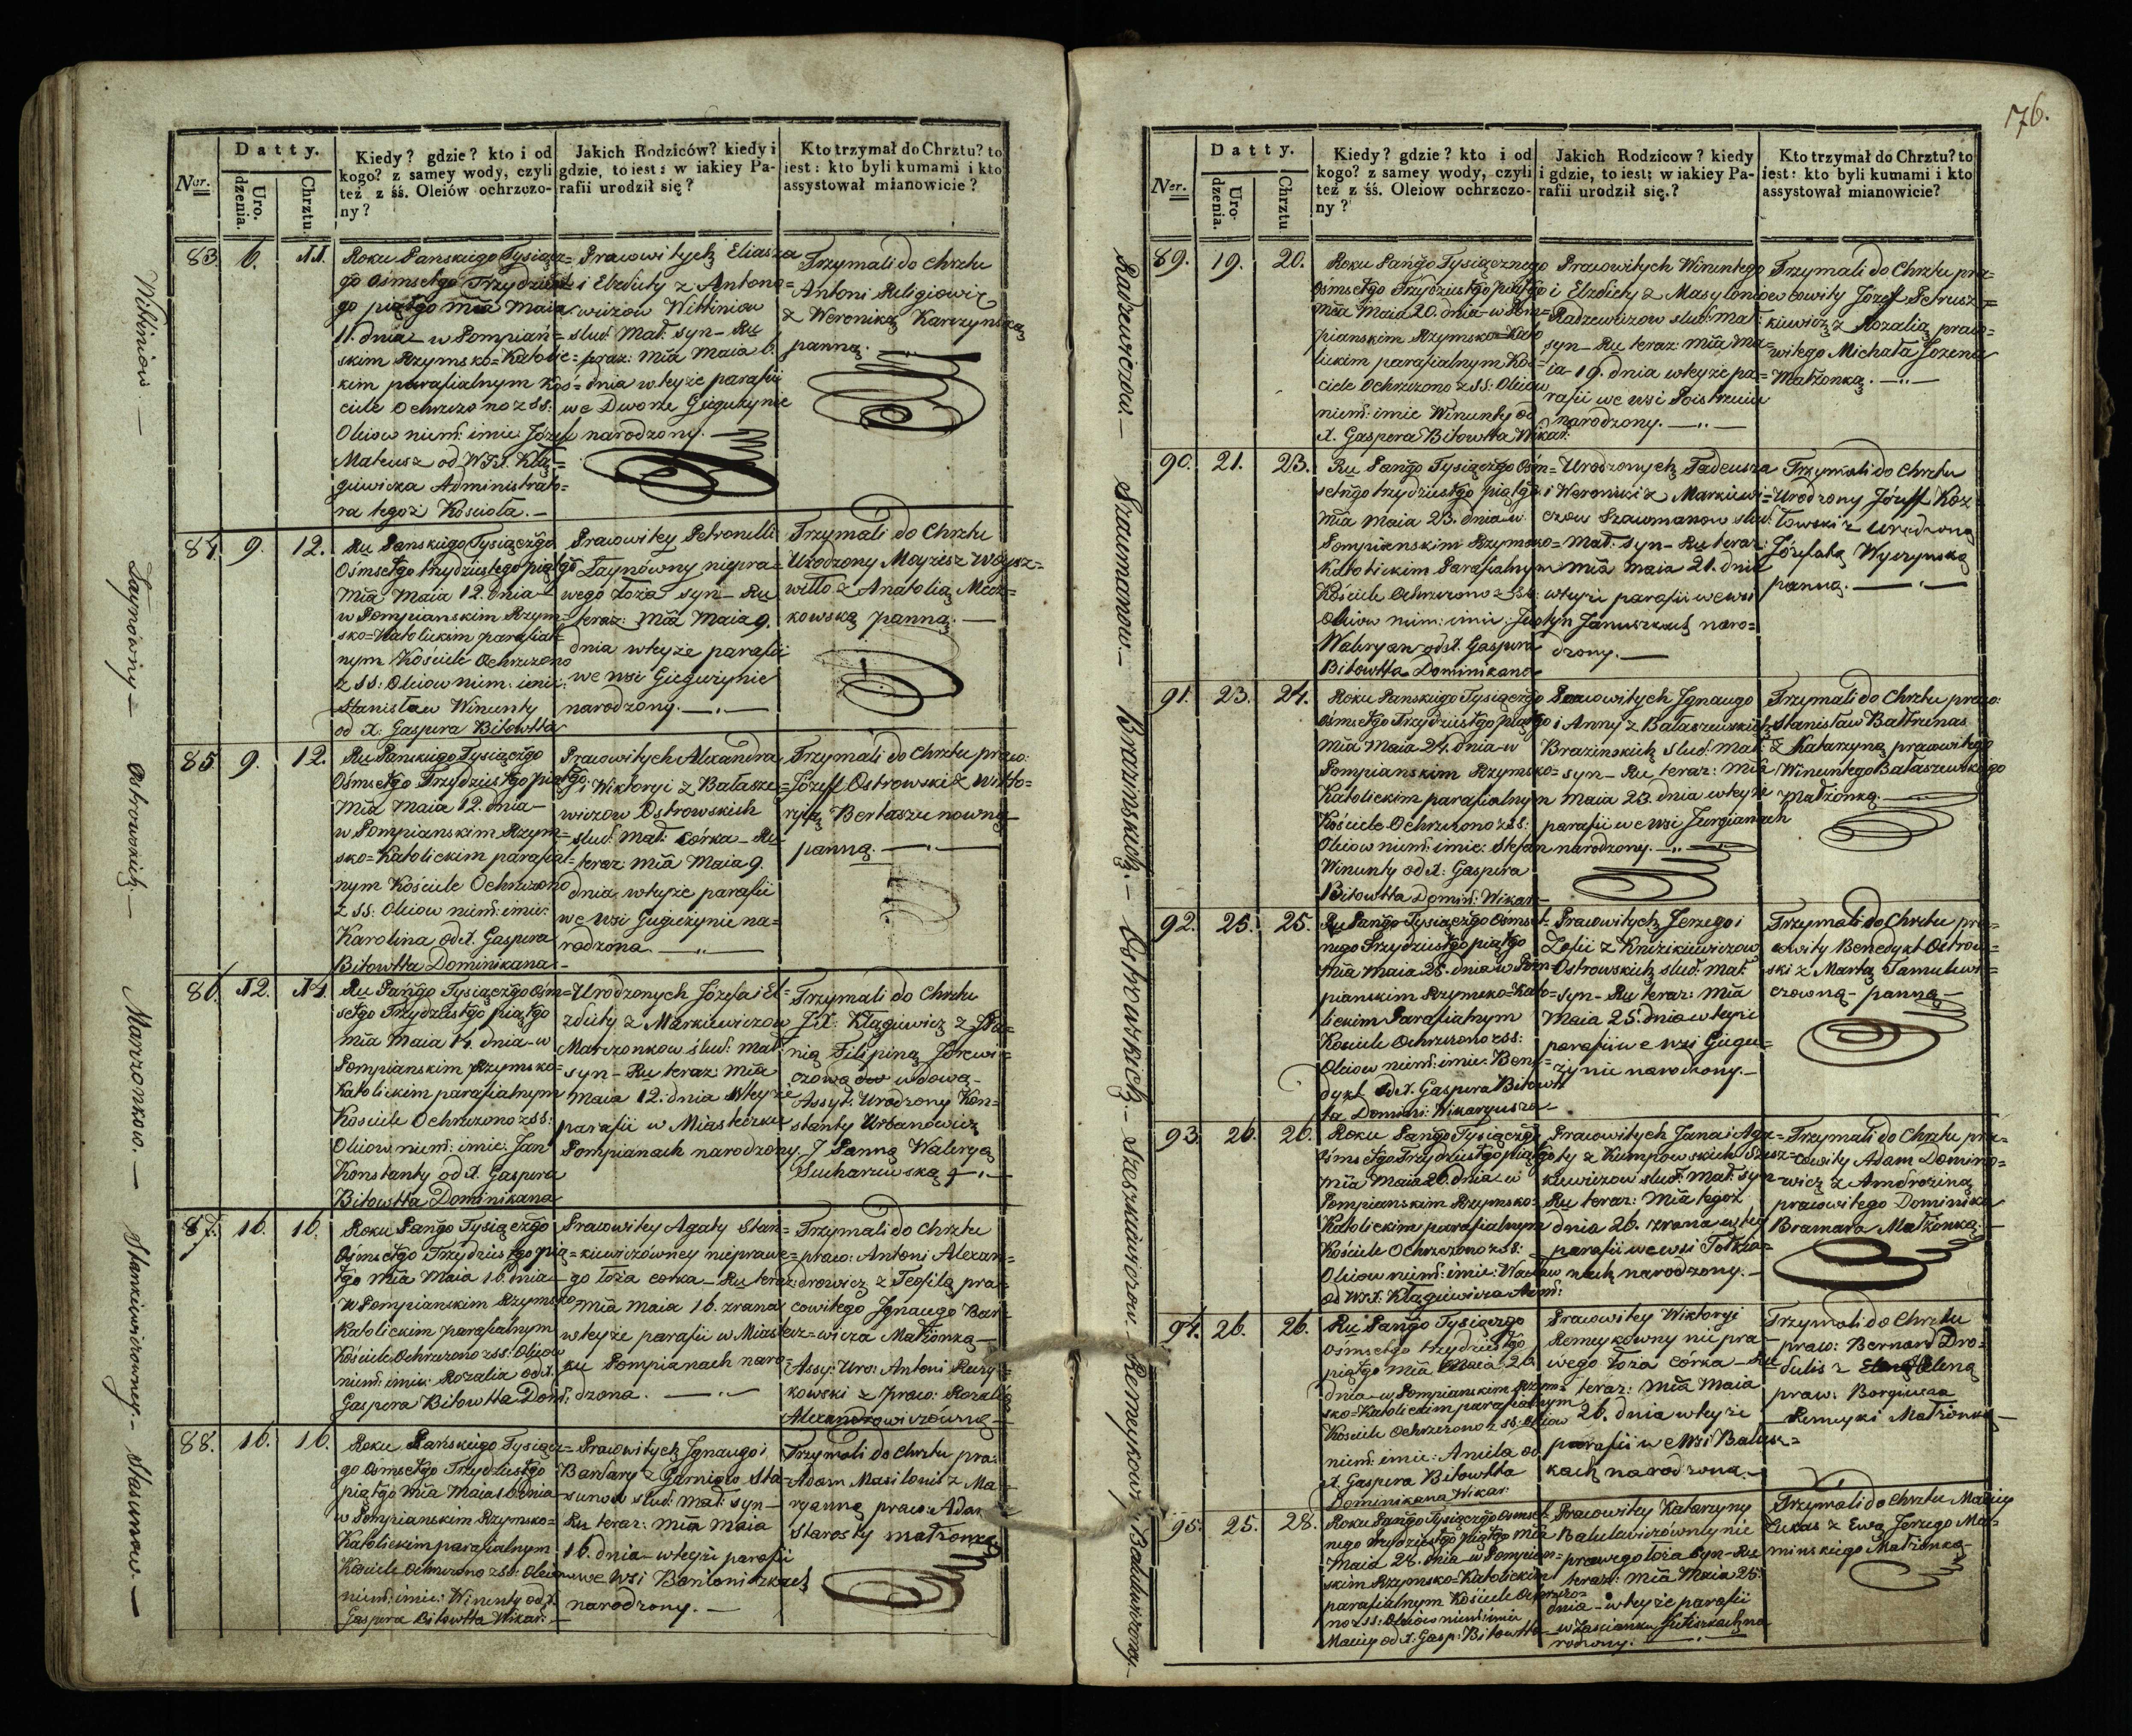 176.
Datty.
Ner.
Uro.
dzenia.
Chrztu.
Kiedy? gdzie? kto i od
kogo? z samey wody, czyli
też z śś. Oleiów ochrzczo-
ny?
Jakich Rodziców? kiedy i
gdzie, to iest: w iakiey Pa-
rafii urodził się?
Kto trzymał do Chrztu? to
iest: kto byli kumami i kto
assystował mianowicie?
83. 6. 11.
Roku Pańskiego Tysiącz=
go Ośmsetgo Trzydziest
go piątgo mca Maia
11. dnia w Pompiań=
skim Rzymsko=Katolic=
kim parafialnym Koś=
ciele Ochrzczono z SS:
Oleiow niem: imie: Józef
Mateusz od WJX. Klą=
giewicza Administrato=
ra tegoż Kościoła.—
Pracowitych Eliasza
i Elżbiety z Antono=
wiczow Witbiniow
ślub: Mał: syn— Ru
teraz: Mca Maia 6.
dnia w teyże parafii
we Dworze Giegużynie
narodzony.—
Trzymali do Chrztu
Antoni Religiowicz
z Weroniką Karczynską
panną.
84. 9. 12.
Ru Pańskiego Tysiączgo
Ośmsetgo trzydziestego piątgo
Mca Maia 12. dnia—
w Pompianskim Rzym=
sko=Katolickim parafial=
nym Kościele Ochrzczono
z SS: Oleiow niem: imie:
Stanisław Wincenty
od X. Gaspera Bitowtta
Pracowitey Petronelli
Łaynówny niepra=
wego łoża syn— Ru
teraz: Mca Maia 9.
dnia w teyże parafii
we wsi Giegużynie
narodzony.—
Trzymali do Chrztu
Urodzony Moyżesz Woysz=
wiłło z Anatolią Micz=
kowską panną.—
85. 9. 12.
Ru Pańskiego Tysiączgo
Ośmsetgo Trzydziestgo piątgo
Mca Maia 12. dnia—
w Pompianskim Rzym=
sko=Katolickim parafial=
nym Kościele Ochrzczono
z SS: Oleiow niem: imie:
Karolina od X. Gaspera
Bitowtta Dominikana—
Pracowitych Alexandra
i Wiktoryi z Bałasze=
wiczow Ostrowskich
ślub: Mał: córka— Ru
teraz: Mca Maia 9.
dnia w teyże parafii
we wsi Giegużynie na=
rodzona.—
Trzymali do Chrztu praco:
Józeff Ostrowski z Wikto=
ryią Bertaszunowną
panną.—
86. 12. 14.
Ru Pańgo Tysiączgo Ośm=
setgo Trzydziestgo piątgo
Mca Maia 14. dnia w
Pompianskim Rzymsko=
Katolickim parafialnym
Kościele Ochrzczono z SS:
Oleiow niem: imie: Jan
Konstanty od X. Gaspera
Bitowtta Dominikana
Urodzonych Józefa i El=
żbiety z Markiewiczow
Marzonkow ślub: Mał:
syn— Ru teraz: Mca
Maia 12. dnia w teyże
parafii w Miasteczku
Pompianach narodzony
Trzymali do Chrztu
JX: Klągiewicz z JPa=
nią Filipiną Jdzewi=
czową wdową—
Assyt: Urodzony Kon=
stanty Urbanowicz
z Panną Waleryą
Sucharzewską
87. 16. 16.
Roku Pańgo Tysiączgo
Ośmsetgo Trzydziestgo pią=
tgo Mca Maia 16. dnia—
w Pompianskim Rzymsko
Katolickim parafialnym
Kościele Ochrzczono z SS: Oleiow
niem: imie: Rozalia od X.
Gaspera Bitowtta Dom:
Pracowitey Agaty Stan=
kiewiczówney nieprawe=
go łoża corka— Ru teraz:
Mca Maia 16. zrana
w teyże parafii w Miastecz=
ku Pompianach naro=
dzona.—
Trzymali do Chrztu
praco: Antoni Alexan=
drowicz z Teofilą pra=
cowitego Ignacego Bar=
wicza Małżonką—
Assy: Uro: Antoni Rury=
kowski z praco: Rozalią
Alexandrowiczówną—
88. 16. 16.
Roku Pańskiego Tysiącz=
go Ośmsetgo Trzydziestgo
piątgo Mca Maia 16. dnia
w Pompianskim Rzymsko=
Katolickim parafialnym
Kościele Ochrzczono z SS: Oleiow
niem: imie: Wincenty od X.
Gaspera Bitowtta Wikar:
Pracowitych Ignacego i
Barbary z Garniow Sta=
sunow ślub: Mał: syn—
Ru teraz: Mca Maia
16. dnia w teyże parafii
we wsi Bontoniszkach
narodzony.—
Trzymali do Chrztu pra:
Adam Masilonis z Ma=
ryanną praco: Adama
Starosty małżonką
Witbiniow.—
Łaynówny—
Ostrowskich.—
Marzonkow.—
Stankiewiczowney.—
Stasunow.—
Datty.
Ner.
Uro-
dzenia.
Chrztu
Kiedy? gdzie? kto i od
kogo? z samey wody, czyli
też z śś. Oleiow ochrzczo-
ny?
Jakich Rodzicow? kiedy
i gdzie, to iest: w iakiey Pa-
rafii urodził się.?
Kto trzymał do Chrztu? to
iest: kto byli kumami i kto
assystował mianowicie?
89. 19. 20.
Roku Pańgo Tysiącznego
Ośmsetgo Trzydziestgo piątgo
Mca Maia 20. dnia w Pom=
pianskim Rzymsko=Kato
lickim parafialnym Koś=
ciele Ochrzczono z SS: Oleiow
niem: imie Wincenty od
X. Gaspera Bitowtta Wikar:
Pracowitych Wincentego
i Elżbiety z Masyloniow
Radzewiczow ślub: Mał:
syn— Ru teraz: Mca Ma=
ia 19. dnia w teyże pa=
rafii we wsi Poistrzeciu
narodzony.—
Trzymali do Chrztu pra=
cowity Józef Petrusz=
kiewicz z Rozalią praco=
witego Michała Jozena
Małżonką.—
90. 21. 23.
Ru Pańgo Tysiączgo Ośm=
setngo trzydziestgo piątgo
Mca Maia 23. dnia w
Pompianskim Rzymsko=
Katolickim Parafialnym
Kościele Ochrzczono z SS:
Oleiow niem: imie: Justyn
Waleryan od X. Gaspera
Bitowtta Dominikana
Urodzonych Tadeusza
i Weroniki z Markiewi=
czow Szaumanow ślub:
Mał: syn— Ru teraz:
Mca Maia 21. dnia
w teyże parafii we wsi
Januszkach naro=
dzony.—
Trzymali do Chrztu
Urodzony Józeff Koz=
łowski z Urodzoną
Józefatą Wyczynską
panną.—
91. 23. 24.
Roku Pańskiego Tysiączgo
Ośmsetgo Trzydziestgo piątgo
Mca Maia 24. dnia w
Pompianskim Rzymsko=
Katolickim parafialnym
Kościele Ochrzczono z SS:
Oleiow niem: imie: Stefan
Wincenty od X: Gaspera
Bitowtta Domin: Wikar—
Pracowitych Ignacego
i Anny z Bałaszewskich
Brazinskich ślub: Mał:
syn— Ru teraz: Mca
Maia 23. dnia w teyże
parafii we wsi Jurgianach
narodzony.—
Trzymali do Chrztu praco:
Stanisław Bałtrunas
z Katarzyną pracowitego
Wincentego Bałaszewskiego
małżonką.—
92. 25. 25.
Ru Pańgo Tysiączgo Ośmset=
nego Trzydziestgo piątgo
Mca Maia 25. dnia w Pom=
pianskim Rzymsko=Kato=
lickim Parafialnym
Kościele Ochrzczono z SS:
Oleiow niem: imie: Bene=
dykt od X. Gaspera Bitowt
ta Domini: Wikaryusza—
Pracowitych Jerzego i
Zofii z Kniżikiewiczow
Ostrowskich ślub: Mał:
syn— Ru teraz: Mca
Maia 25. dnia w teyże
parafii we wsi Giegu=
żynie narodzony.—
Trzymali do Chrztu pra=
cowity Benedykt Ostrow=
ski z Martą Tamulewi=
czowną— panną—
93. 26. 26.
Roku Pańgo Tysiączgo
Ośmsetgo Trzydziestgo piątgo
Mca Maia 26. dnia w
Pompianskim Rzymsko=
Katolickim parafialnym
Kościele Ochrzczono z SS:
Oleiow niem: imie: Wacław
od WJX. Klągiewicza Adm:
Pracowitych Jana i Aga=
ty z Kumpowskich Szosz=
kiewiczow ślub: Mał: syn—
Ru teraz: Mca tegoż
dnia 26. zrana w tey
parafii we wsi Tołkia=
nach narodzony.—
Trzymali do Chrztu pra=
cowity Adam Domino=
wicz z Ambrożiną
pracowitego Dominika
Bramara Małżonką.—
94. 26. 26.
Ru Pańgo Tysiączgo
Ośmsetgo trzydziestgo
piątgo Mca Maia 26.
dnia w Pompianskim Rzym=
sko=Katolickim parafialnym
Kościele Ochrzczono z SS: Oleiow
niem: imie: Aniela od
X. Gaspera Bitowtta
Dominikana Wikar:
Pracowitey Wiktoryi
Remeykowny niepra=
wego łoża córka— Ru
teraz: Mca Maia
26. dnia w teyże
parafii we wsi Balusz=
kach narodzona.—
Trzymali do Chrztu
praco: Bernard Dro=
dulis z Eleną
praw: Borgiusza
Remeyki Małżonką—
95. 25. 28.
Roku Pańgo Tysiączgo Ośmset=
nego trzydziestgo piątgo Mca
Maia 28. dnia w Pompian=
skim Rzymsko=Katolickim
parafialnym Kościele Ochrzczo=
no z SS: Oleiow niem: imie
Maciey od X. Gasp: Bitowtta
Pracowitey Katarzyny
Balulewiczówny nie
prawego łoża syn— Ru
teraz: Mca Maia 25.
dnia w teyże parafii
w Zaścianku Juciszkach na
rodzony.—
Trzymali do Chrztu Maciey
Lukas z Ewą Jerzego Ma=
minskiego Małżonką—
Radzewiczow.—
Szaumanow.—
Brazinskich.—
Ostrowskich.—
Szoszkiewiczow.—
Remeykowny.
Balulewiczowny.—